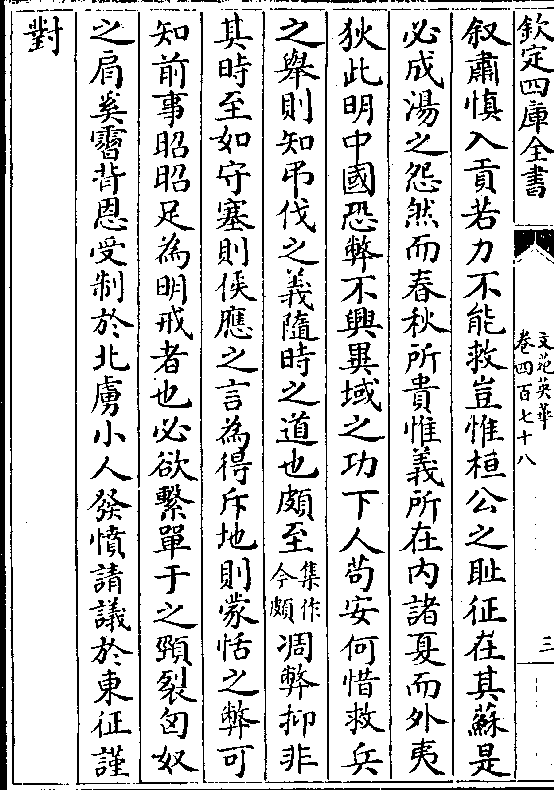 欽定四庫全書
文苑英華
卷四百七十八
三
叙肅慎入貢若力不能救豈惟桓公之恥征在其蘇是
必成湯之怨然而春秋所貴惟義所在内諸夏而外夷
狄此明中國恐弊不興異域之功下人苟安何惜救兵
之舉則知弔伐之義隨時之道也頗至集作今頗凋弊抑非
其時至如守塞則侯應之言為得斥地則蒙恬之弊可
知前事昭昭足為明戒者也必欲繫單于之頸裂匈奴
之肩奚霫背恩受制於北虜小人發憤請議於東征謹
對